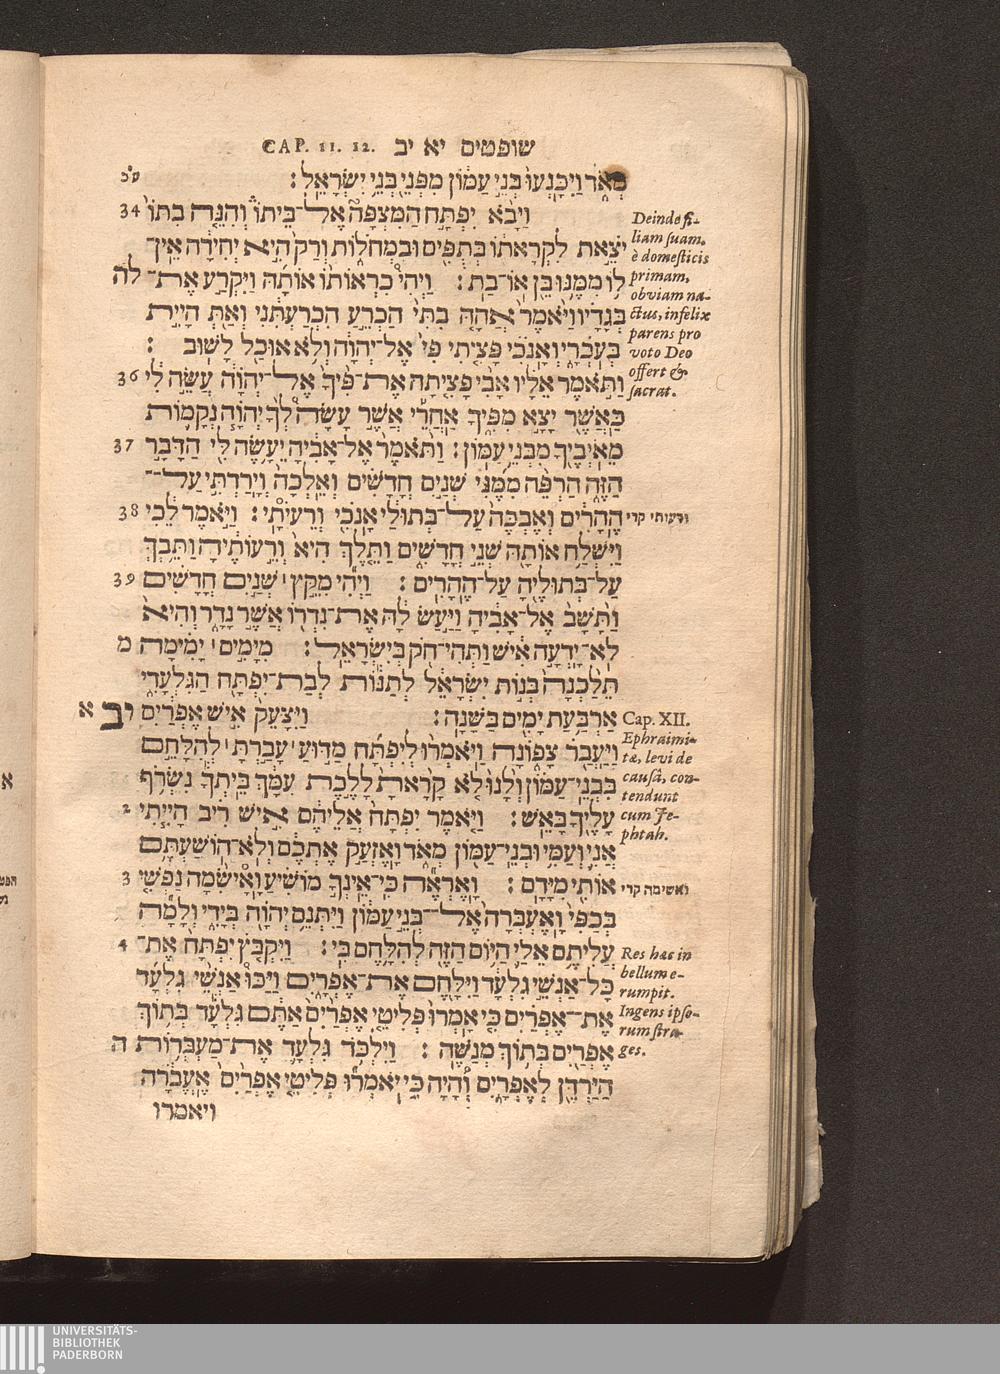 שופטים יא יב CAP. 11. 12.
מְאֹד וַיִּכָּנְעוּ בְּנֵי עַמּוֹן מִפְּנֵי בְּנֵי יִשְׂרָאֵל׃
34 וַיָּבֹא יִפְתָּח הַמִּצְפָּה אֶל־בֵּיתוֹ וְהִנֵּה בִתּוֹ
יֹצֵאת לִקְרָאתוֹ בְּתֻפִּים וּבִמְחֹלוֹת וְרַק הִיא יְחִידָה אֵין־
לוֹ מִמֶּנּוּ בֵּן אוֹ־בַת׃ וַיְהִי כִרְאוֹתוֹ אוֹתָהּ וַיִּקְרַע אֶת־ לה
בְּגָדָיו וַיֹּאמֶר אֲהָהּ בִּתִּי הַכְרֵעַ הִכְרַעְתִּנִי וְאַתְּ הָיִית
בְּעֹכְרָי וְאָנֹכִי פָּצִיתִי פִי אֶל־יְהוָֹה וְלֹא אוּכַל לָשׁוּב׃
36 וַתֹּאמֶר אֵלָיו אָבִי פָּצִיתָה אֶת־פִּיךָ אֶל־יְהוָֹה עֲשֵׂה לִי
כַּאֲשֶׁר יָצָא מִפִּיךָ אַחֲרֵי אֲשֶׁר עָשָׂה לְךָ יְהוָֹה נְקָמוֹת
מֵאֹיְבֶיךָ מִבְּנֵי עַמּוֹן׃ וַתֹּאמֶר אֶל־אָבִיהָ יֵעָשֶׂה לִּי הַדָּבָר 37
הַזֶּה הַרְפֵּה מִמֶּנִּי שְׁנַיִם חֳדָשִׁים וְאֵלְכָה וְיָרַדְתִּי עַל־
הֶהָרִים וְאֶבְכֶּה עַל־בְּתוּלַי אָנֹכִי וְרֵעיֹתָי׃ וַיֹּאמֶר לֵכִי 38
וַיִּשְׁלַח אוֹתָהּ שְׁנֵי חֳדָשִׁים וַתֵּלֶךְ הִיא וְרֵעוֹתֶיהָ וַתֵּבְךְּ
עַל־בְּתוּלֶיהָ עַל־הֶהָרִים׃ וַיְהִי מִקֵּץ ׀ שְׁנַיִם חֳדָשִׁים 39
וַתָּשָׁב אֶל־אָבִיהָ וַיַּעַשׂ לָהּ אֶת־נִדְרוֹ אֲשֶׁר נָדָר וְהִיא
לֹא־יָדְעָה אִישׁ וַתְּהִי־חֹק בְּיִשְׂרָאֵל׃ מִיָּמִים ׀ יָמִימָה מ
תֵּלַכְנָה בְּנוֹת יִשְׂרָאֵל לְתַנּוֹת לְבַת־יִפְתָּח הַגִּלְעָדִי
אַרְבַּעַת יָמִים בַּשָּׁנָה׃ וַיִּצָּעֵק אִישׁ אֶפְרַיִם יב א
וַיַּעֲבֹר צָפוֹנָה וַיֹּאמְרוּ לְיִפְתָּח מַדּוּעַ ׀ עָבַרְתָּ ׀ לְהִלָּחֵם
בִּבְנֵי־עַמּוֹן וְלָנוּ לֹא קָרָאתָ לָלֶכֶת עִמָּךְ בֵּיתְךָ נִשְׂרֹף
עָלֶיךָ בָּאֵשׁ׃ וַיֹּאמֶר יִפְתָּח אֲלֵיהֶם אִישׁ רִיב הָיִיתִי 2
אֲנִי וְעַמִּי וּבְנֵי־עַמּוֹן מְאֹד וָאֶזְעַק אֶתְכֶם וְלֹא־הוֹשַׁעְתֶּם
אוֹתִי מִיָּדָם׃ וָאֶרְאֶה כִּי־אֵינְךָ מוֹשִׁיעַ וָאֹישִׂמָה נַפְשִׁי 3
בְכַפִּי וָאֶעְבְּרָה אֶל־בְּנֵי עַמּוֹן וַיִּתְּנֵם יְהוָֹה בְּיָדִי וְלָמָה
עֲלִיתֶם אֵלַי הַיּוֹם הַזֶּה לְהִלָּחֶם בִּי׃ וַיִּקְבֹּץ יִפְתָּח אֶת־ 4
כָּל־אַנְשֵׁי גִלְעָד וַיִּלָּחֶם אֶת־אֶפְרָיִם וַיַּכּוּ אַנְשֵׁי גִלְעָד
אֶת־אֶפְרַיִם כִּי אָמְרוּ פְּלִיטֵי אֶפְרַיִם אַתֶּם גִּלְעָד בְּתוֹךְ
אֶפְרַיִם בְּתוֹךְ מְנַשֶּׁה׃ וַיִּלְכֹּד גִּלְעָד אֶת־מַעְבְּרוֹת ה
הַיַּרְדֵּן לְאֶפְרָיִם וְהָיָה כִּי יֹאמְרוּ פְּלִיטֵי אֶפְרַיִם אֶעֱבֹרָה
ויאמרו
Deinde fi-
liam suam,
è domesticis
primam,
obviam na-
ctus, infelix
parens pro
voto Deo
offert &
sacrat.
ורעותי קרי
Cap. XII.
Ephraimi-
tæ, levi de
causâ, con-
tendunt
cum Je-
phtah.
ואשימה קרי
Res hæc in
bellum e-
rumpit.
Ingens ipso-
rum stra-
ges.
UNIVERSITÄTS-
BIBLIOTHEK
PADERBORN